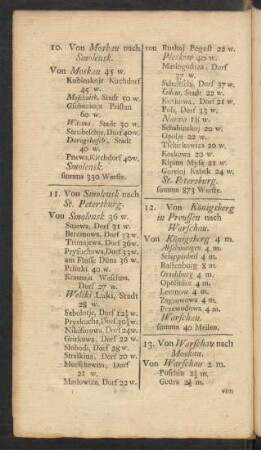 10. Von Moskau nach
Smolensk.
Von Moskau 45 w.
Kubinskoje Kirchdorf
45 w.
Moschaisk, Stadt 50 w.
Gschatskoja Pristan
60 w.
Wäsma, Stadt 30 w.
Semlofschje, Dorf 40 w.
Dorogobusch, Stadt
40 w.
Pnewa, Kirchdorf 40 w.
Smolensk.
summa 350 Werste.
11. Von Smolensk nach
St. Petersburg.
Von Smolensk 36 w.
Sujewa, Dorf 31 w.
Beresnowa, Dorf 33 w.
Trunajewa, Dorf 26 w.
Prystuchowa, Dorf 33 w.
am Flusse Düna 36 w.
Prilutki 40 w.
Krasnaja Weschtin,
Dorf 27 w.
Weliki Luki, Stadt
28 w.
Sebolotje, Dorf 12½ w.
Pryskucha, Dorf 30½ w.
Nikiforowa, Dorf 24 w.
Gritkowa, Dorf 22 w.
Slobodi, Dorf 28 w.
Strelkina, Dorf 20 w.
Dorf 22 w.
Markowize, Dorf 22 w.
von Ruskoj Pogost 22 w.
Pleskow 40 w.
Dorf
37 w.
Dorf 27 w.
Gdow, Stadt 22 w.
Kuskowa, Dorf 21 w.
Poli, Dorf 33 w.
Narwa 18 w.
Opolje 22 w.
Tschirkowize 20 w.
Koskowa 20 w.
Kipina Myse 21 w.
Goreloj Kabak 24 w.
St. Petersburg.
summa 873 Werste.
12. Von Königsberg
in Preussen nach
Warschau.
Von Königsberg 4 m.
4 m.
Schippenbeil 4 m.
Rastenburg 8 m.
Ortelsburg 4 m.
4 m.
4 m.
4 m.
Przewodowa 4 m.
Warschau.
summa 40 Meilen.
13. Von Warschau nach
Moskau.
Von Warschau 2 m.
2½ m.
2½ m.
von